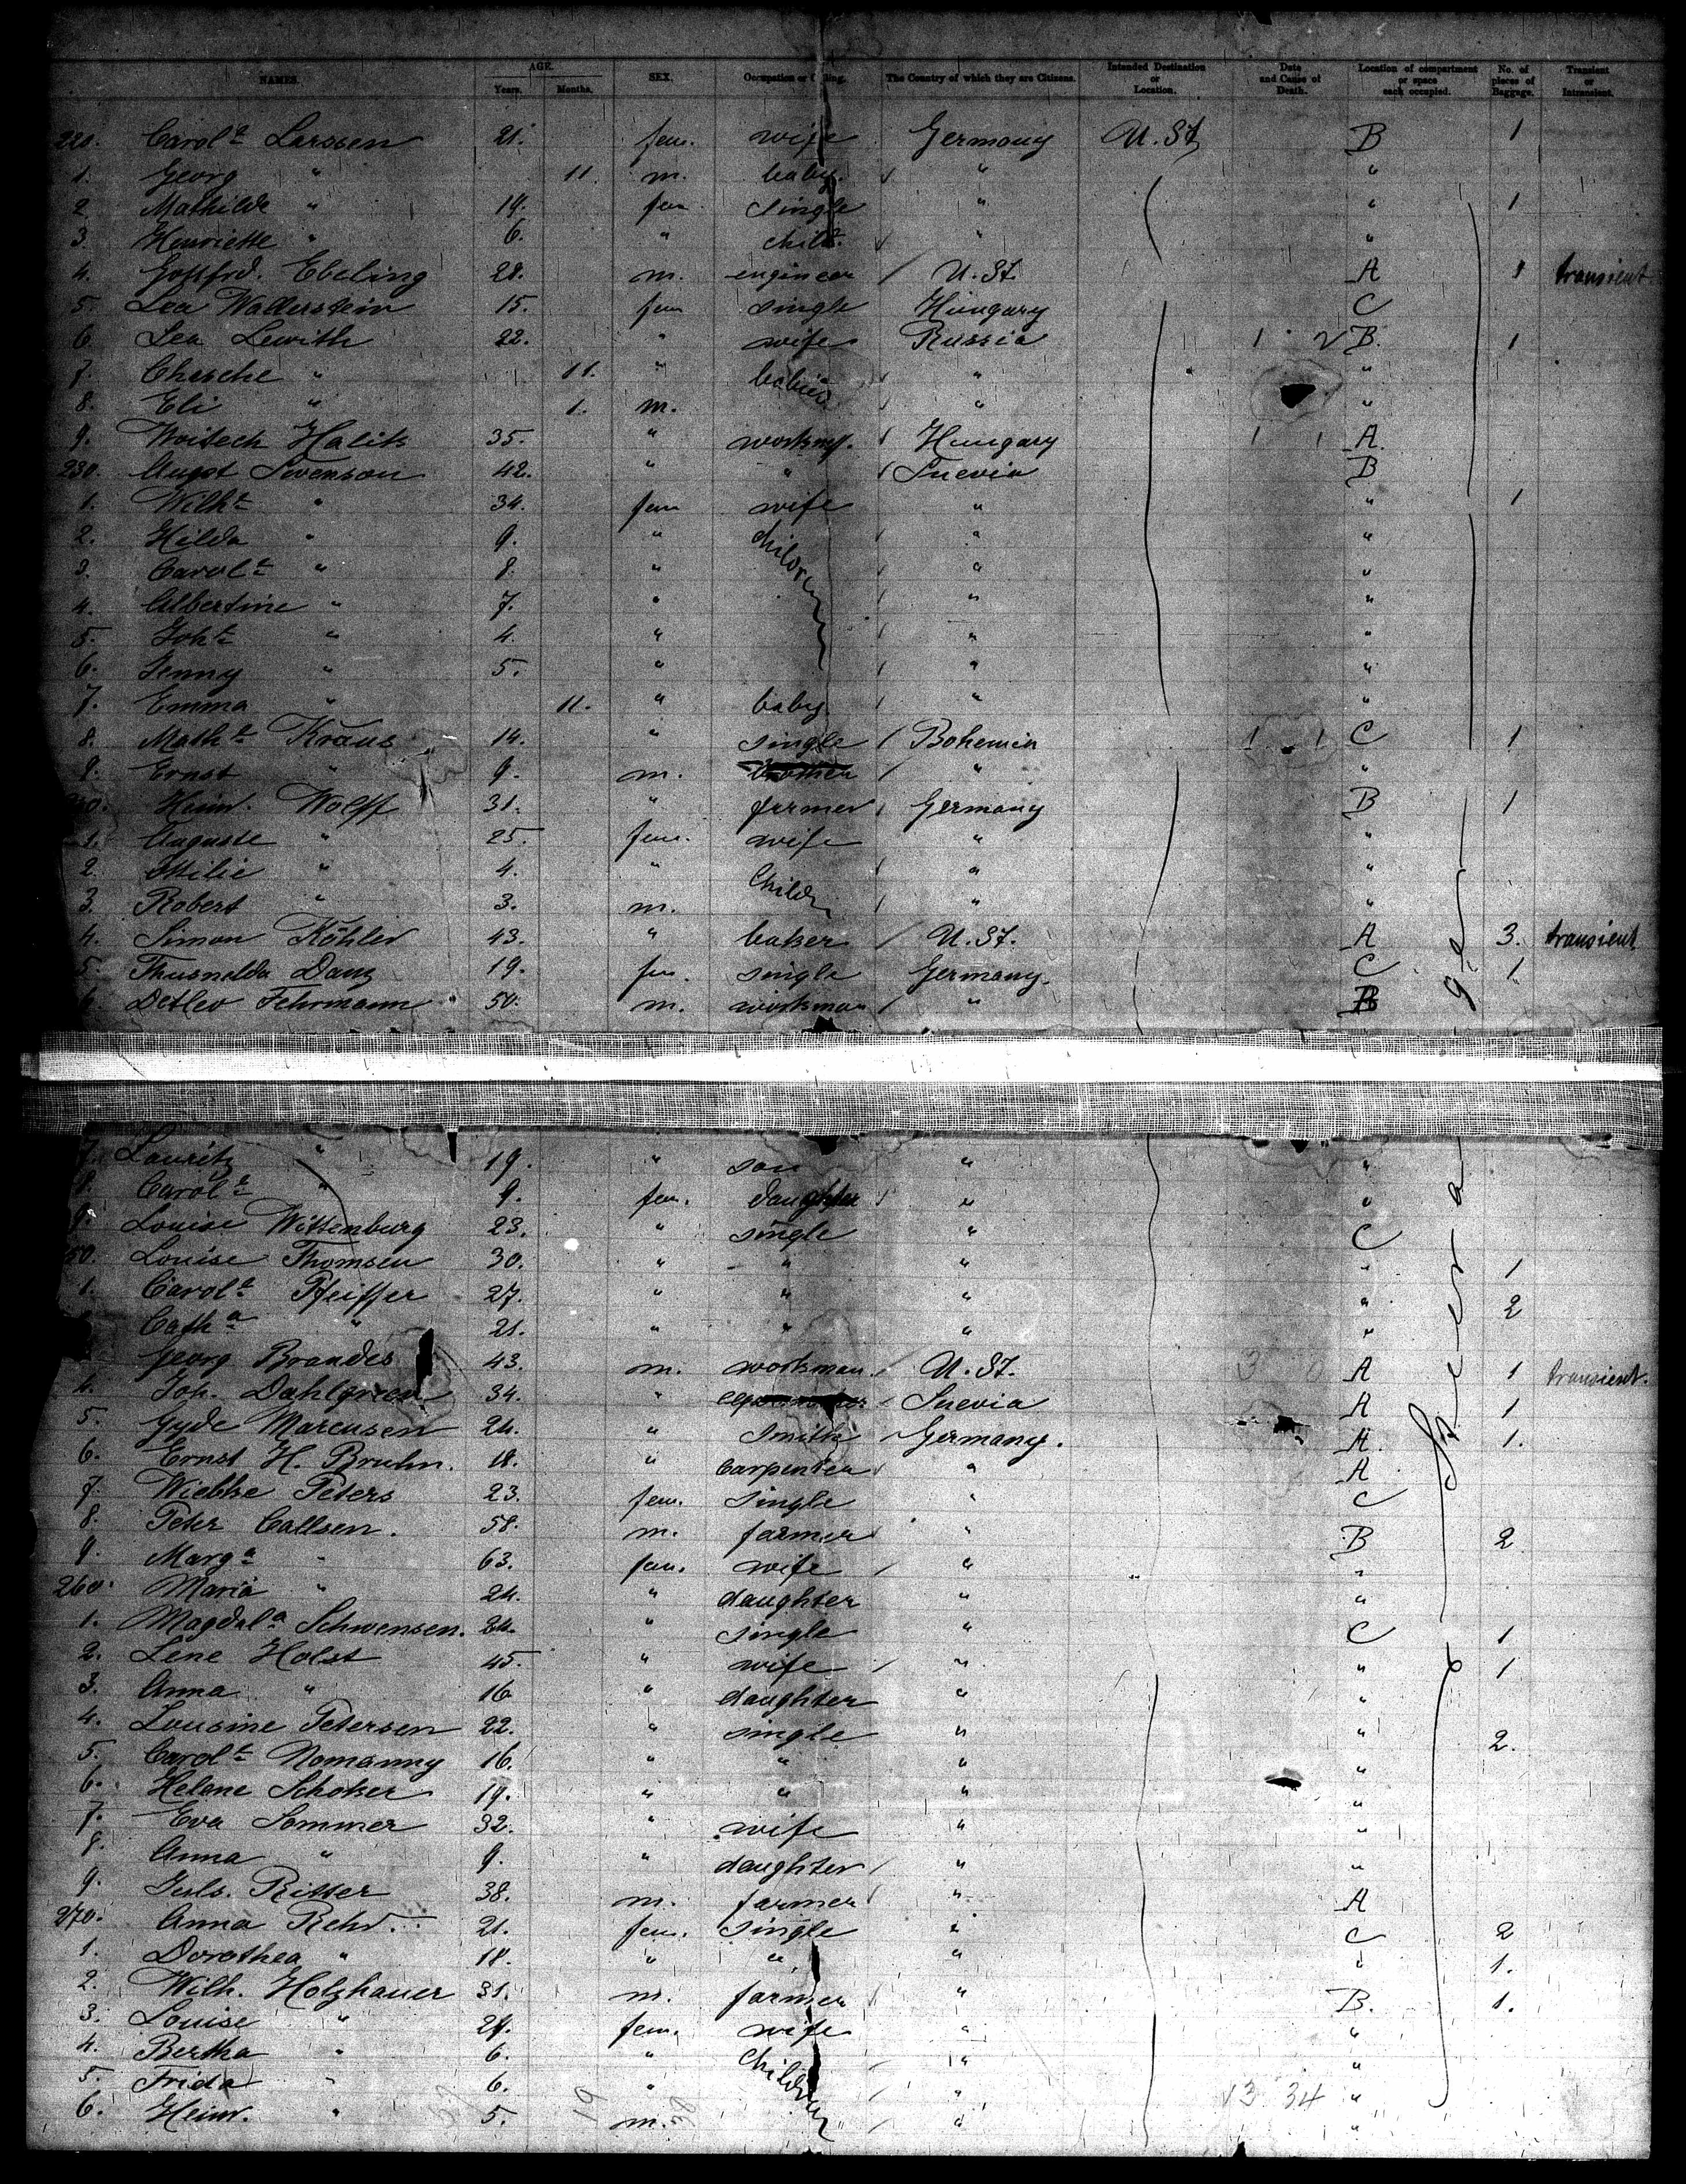 NAMES. AGE. Years. Months. SEX. Occupation or Calling. The Country of which they are Citizens. Intended Destination or Location. Date and Cause of Death. Location of compartment or space each occupied. No. of pieces of Baggage. Transient or Intransient.
220. Carolᵉ Larssen 21. fem. wife Germany U. St. B 1
1. Georg " 11. m. baby. " "
2. Mathilde " 19. fem single " " 1
3. Henriette " 6. " child. " "
4. Gottfrd. Ebeling 28. m. engineer U. St. A 1 transient
5. Lea Wallerstein 15. fem single Hungary C
6. Lea Lewith 22. " wife Russia B. 1
7. Chesche " 11. " babies " "
8. Eli " 1. m. " "
9. Woitech Halik 35. " workmg. Hungary A
230. August Swenson 42. " " Suevia B
1. Wilhᵉ " 34. fem wife " " 1
2. Hilda " 9. " children " "
3. Carolᵉ " 8. " " "
4. Albertine " 7. " " "
5. Johᵉ " 4. " " "
6. Jenny " 5. " " "
7. Emma " 11. " baby. " "
8. Mathᵉ Kraus 14. " single Bohemia C 1
9. Ernst " 9. m. brother " "
240. Heinr. Wolff 31. " farmer Germany B 1
1. Auguste " 25. fem. wife " "
2. Ottilie " 4. " Childr " "
3. Robert " 3. m. " "
4. Simon Köhler 43. " baker U. St. A 3. transient
5. Thusnelda Danz 19. fem. single Germany. C 1.
6. Detlev Fehrmann 50. m. workman " B
7. Lauritz " 19. " son " "
8. Carolᵉ " 9. fem. daughter " "
9. Louise Wittenburg 23. " single " C
50. Louise Thomsen 30. " " " " 1
1. Carolᵉ Pfeiffer 27. " " " " 2
Cathᵃ " 21. " " " "
Georg Brandes 43. m. workman U. St. A 1 transient.
4. Joh. Dahlgreen 34. " Suevia A 1
5. Gyde Marcusen 24. " Smith Germany. A. 1.
6. Ernst H. Bruhn. 18. " Carpenter " A
7. Wiebke Peters 23. fem. Single " C
8. Peter Callsen. 58. m. farmer " B 2
9. Margᵃ " 63. fem. wife " "
260. Maria " 24. " daughter " "
1. Magdalᵃ Schwensen. 24. " single " C 1
2. Lene Holst 45. " wife " " 1
3. Anna " 16 " daughter " "
4. Lousine Petersen 22. " single " " 2.
5. Carolᵉ Nomanny 16. " " " "
6. Helene Schoker 19. " " " "
7. Eva Sommer 32. " wife " "
8. Anna " 9. " daughter " "
9. Juls. Ritter 38. m. farmer " A
270. Anna Rehr. 21. fem. single " C 2
1. Dorothea " 18. " " " " 1.
2. Wilh. Holzhauer 31. m. farmer " B. 1.
3. Louise " 29. fem. wife " "
4. Bertha " 6. " Children " "
5. Frida " 6. " " 3 34 "
6. Heinr. " 5. m. " "
Steerage